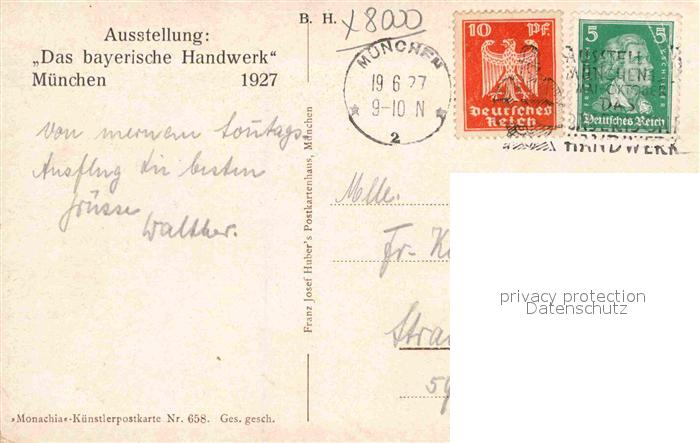 B. H.
x8000
Ausstellung:
„Das bayerische Handwerk“
München 1927
MÜNCHEN
19 6 27
9-10 N
2
10 Pf.
Deutsches
Reich
5 5
SCHILLER
Deutsches Reich
AUSSTELL
MÜNCHEN
DAS
HANDWERK
Von meinem Sonntags
Ausflug die besten
Grüsse
Walther.
Franz Josef Huber's Postkartenhaus, München
Mlle.
Fr-
privacy protection
Datenschutz
»Monachia«-Künstlerpostkarte Nr. 658. Ges. gesch.